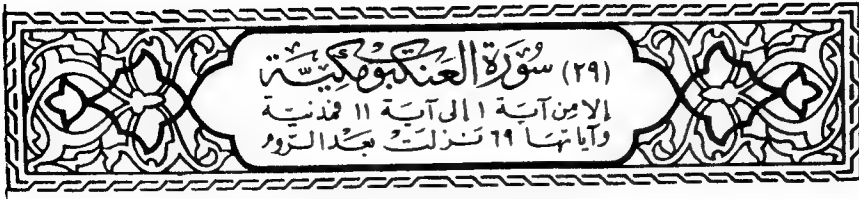 (٢٩) سُورَةُ العَنْكَبُوتِ مَكِّيَّة
إلا مِن آيَة ١ إلى آيَة ١١ فمَدَنيَّة
وآيَاتهَا ٦٩ نَزَلَتْ بَعْدَ الرُّوم